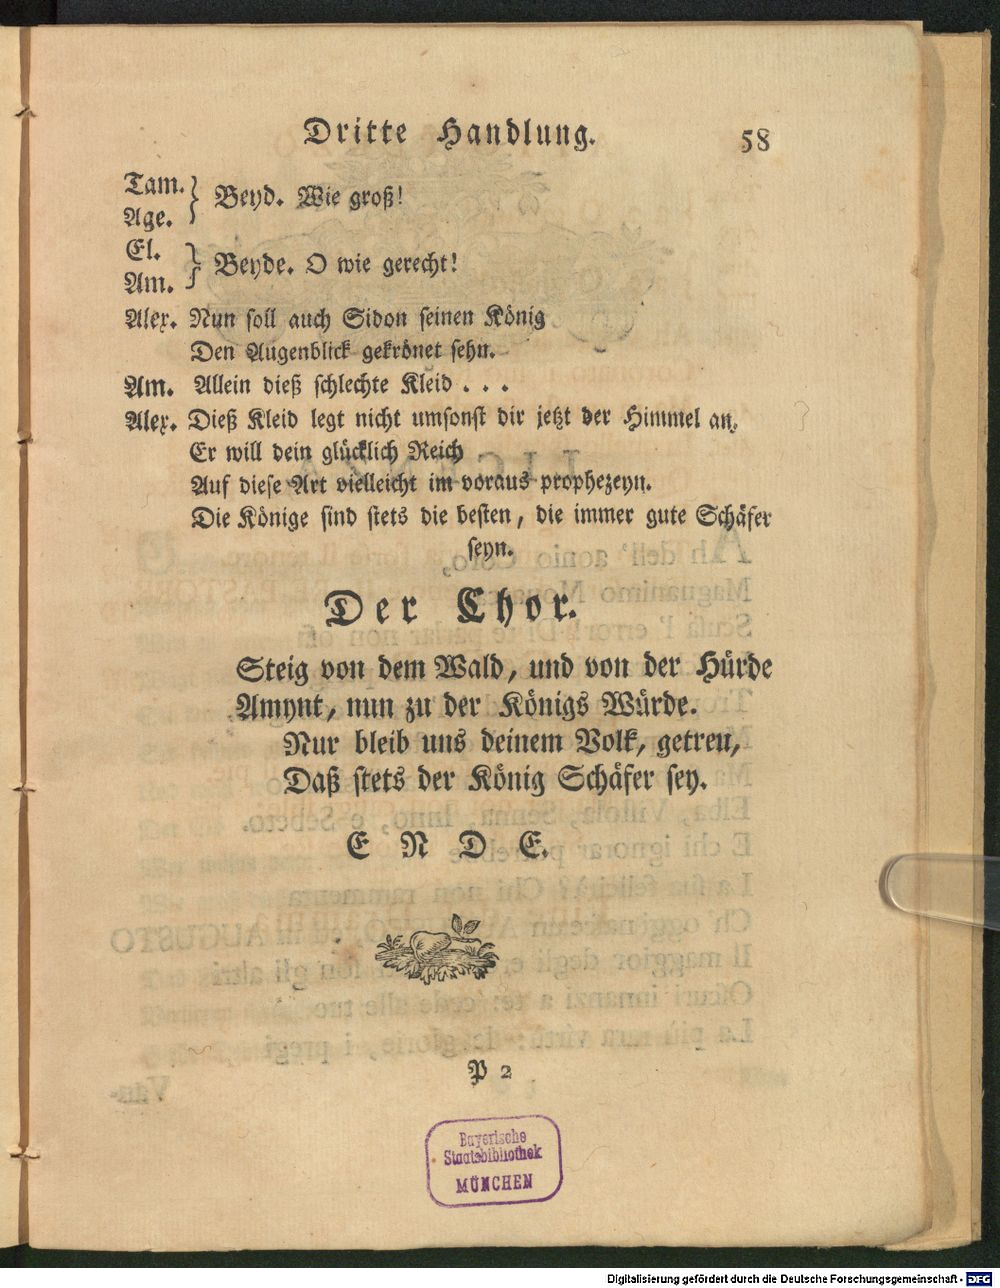 Dritte Handlung. 58
Tam.
Age. } Beyd. Wie groß!
El.
Am. } Beyde. O wie gerecht!
Alex. Nun soll auch Sidon seinen König
Den Augenblick gekrönet sehn.
Am. Allein dieß schlechte Kleid . . .
Alex. Dieß Kleid legt nicht umsonst dir jetzt der Himmel an.
Er will dein glücklich Reich
Auf diese Art vielleicht im voraus prophezeyn.
Die Könige sind stets die besten, die immer gute Schäfer
seyn.
Der Chor.
Steig von dem Wald, und von der Hürde
Amynt, nun zu der Königs Würde.
Nur bleib uns deinem Volk, getreu,
Daß stets der König Schäfer sey.
E N D E.
P 2
Bayerische
Staatsbibliothek
MÜNCHEN
Digitalisierung gefördert durch die Deutsche Forschungsgemeinschaft - DFG